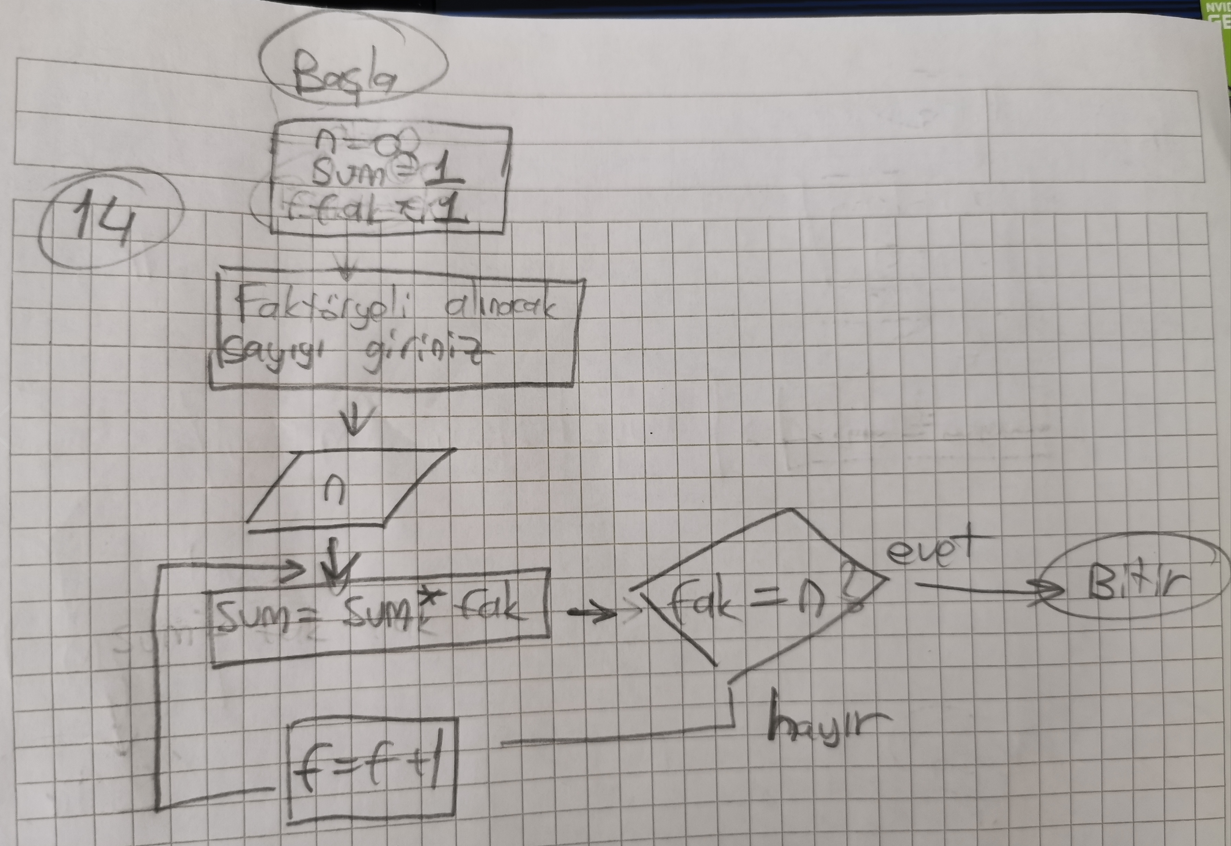 NVID
GE
Başla
n=∞
Sum=1
fak=1
14
Faktöryeli alınacak
sayıyı giriniz
n
Sum= Sum* fak
fak=n?
evet
Bitir
hayır
f=f+1